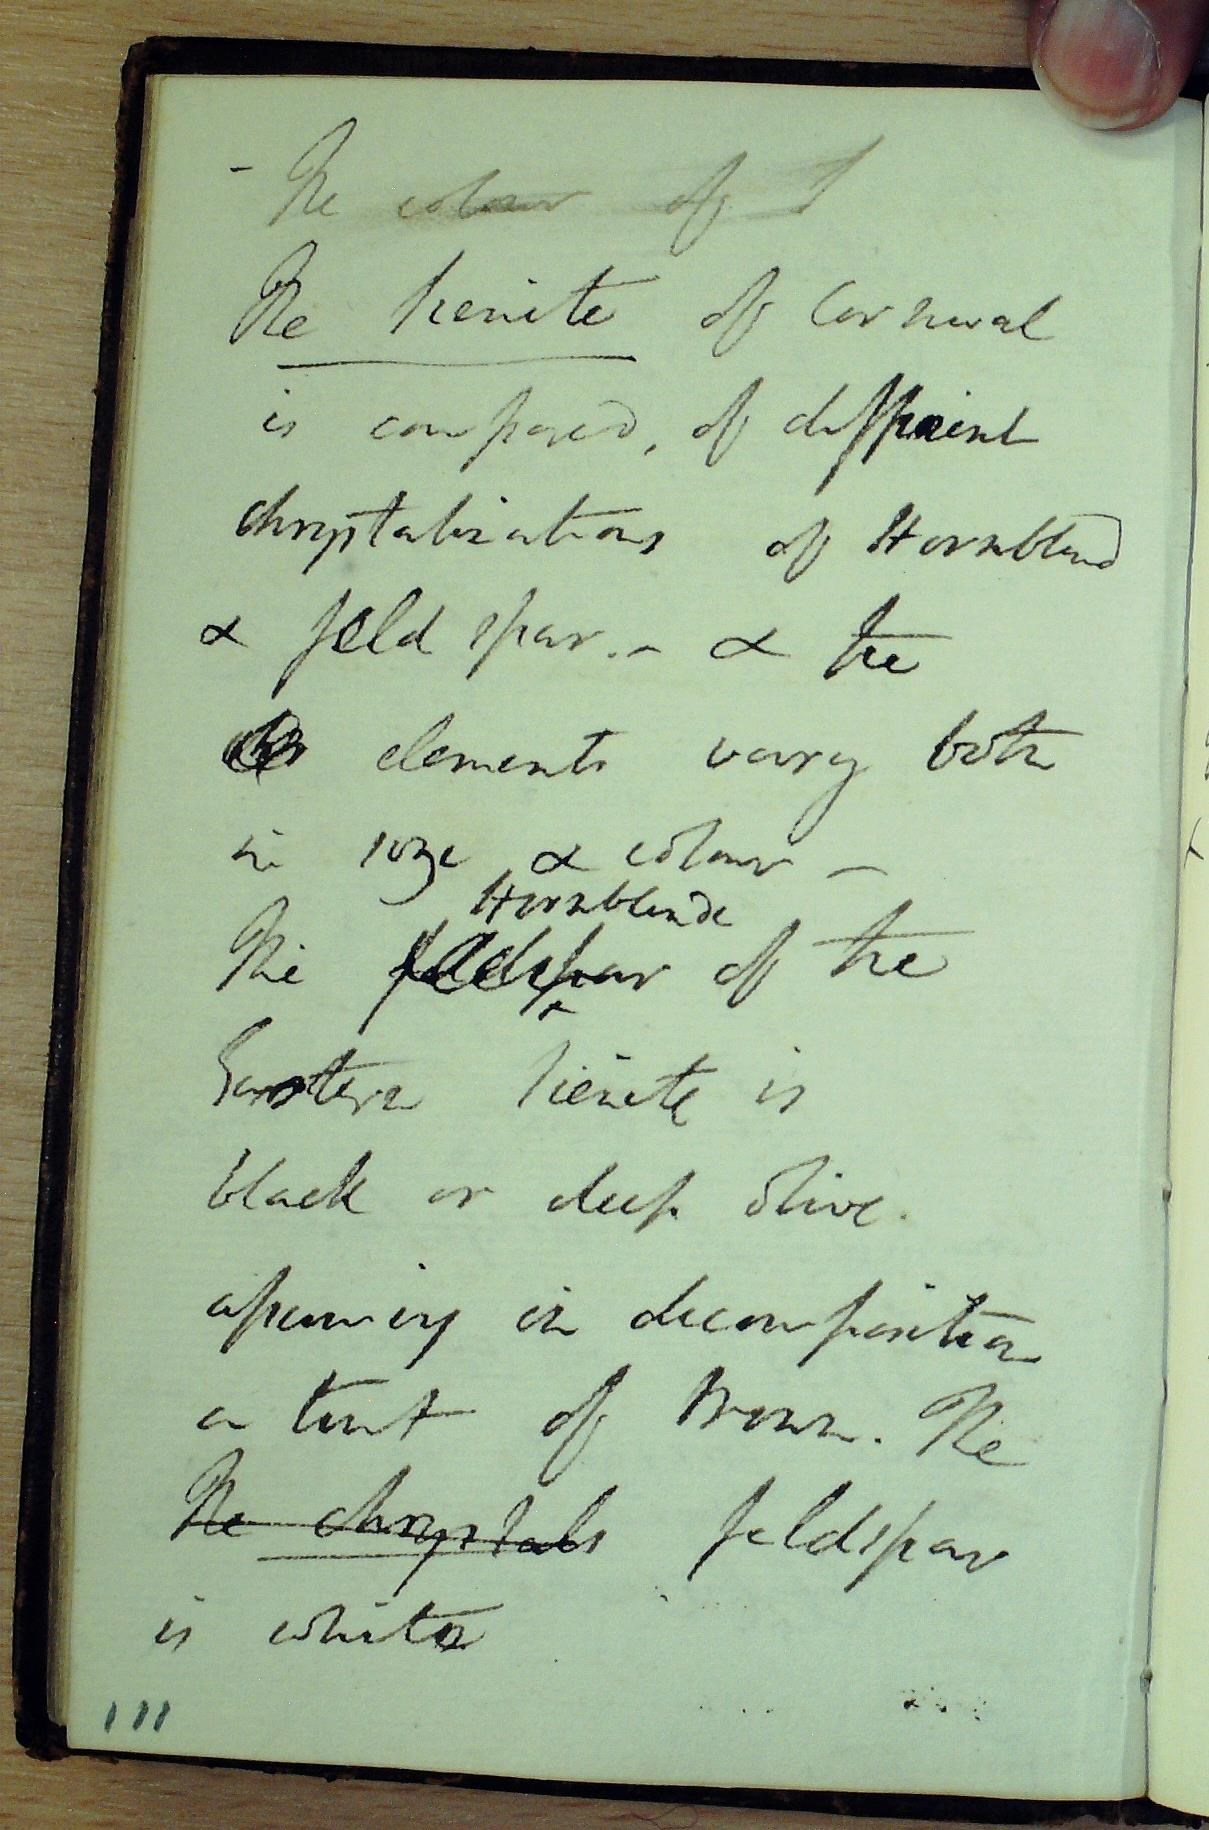 - The colour of T
The Sienite of Cornwal
is composed, of different
chrystalizations of Hornblend
& feld spar. - & the
elements vary both
in size & colour -
Hornblende
The feldspar of the
Eastern Sienite is
black or deep olive.
assuming in decomposition
a tint of Brown. The
The chrystals feldspar
is white
111